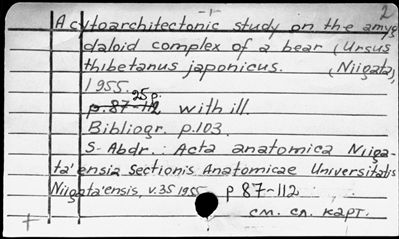 -1-
2
A cytoarchitectonic study on the amyg
daloid complex of a bear (Ursus
thibetanus japonicus. (Niigata),
1955.
25 p.
p. 87-112 with ill.
Bibliogr. p.103.
S-Abdr.: Acta anatomica Niiga-
ta'ensia Sectionis Anatomicae Universitatis
Niigata'ensis, v.35 1955 p 87-112
см. сл. карт.
+